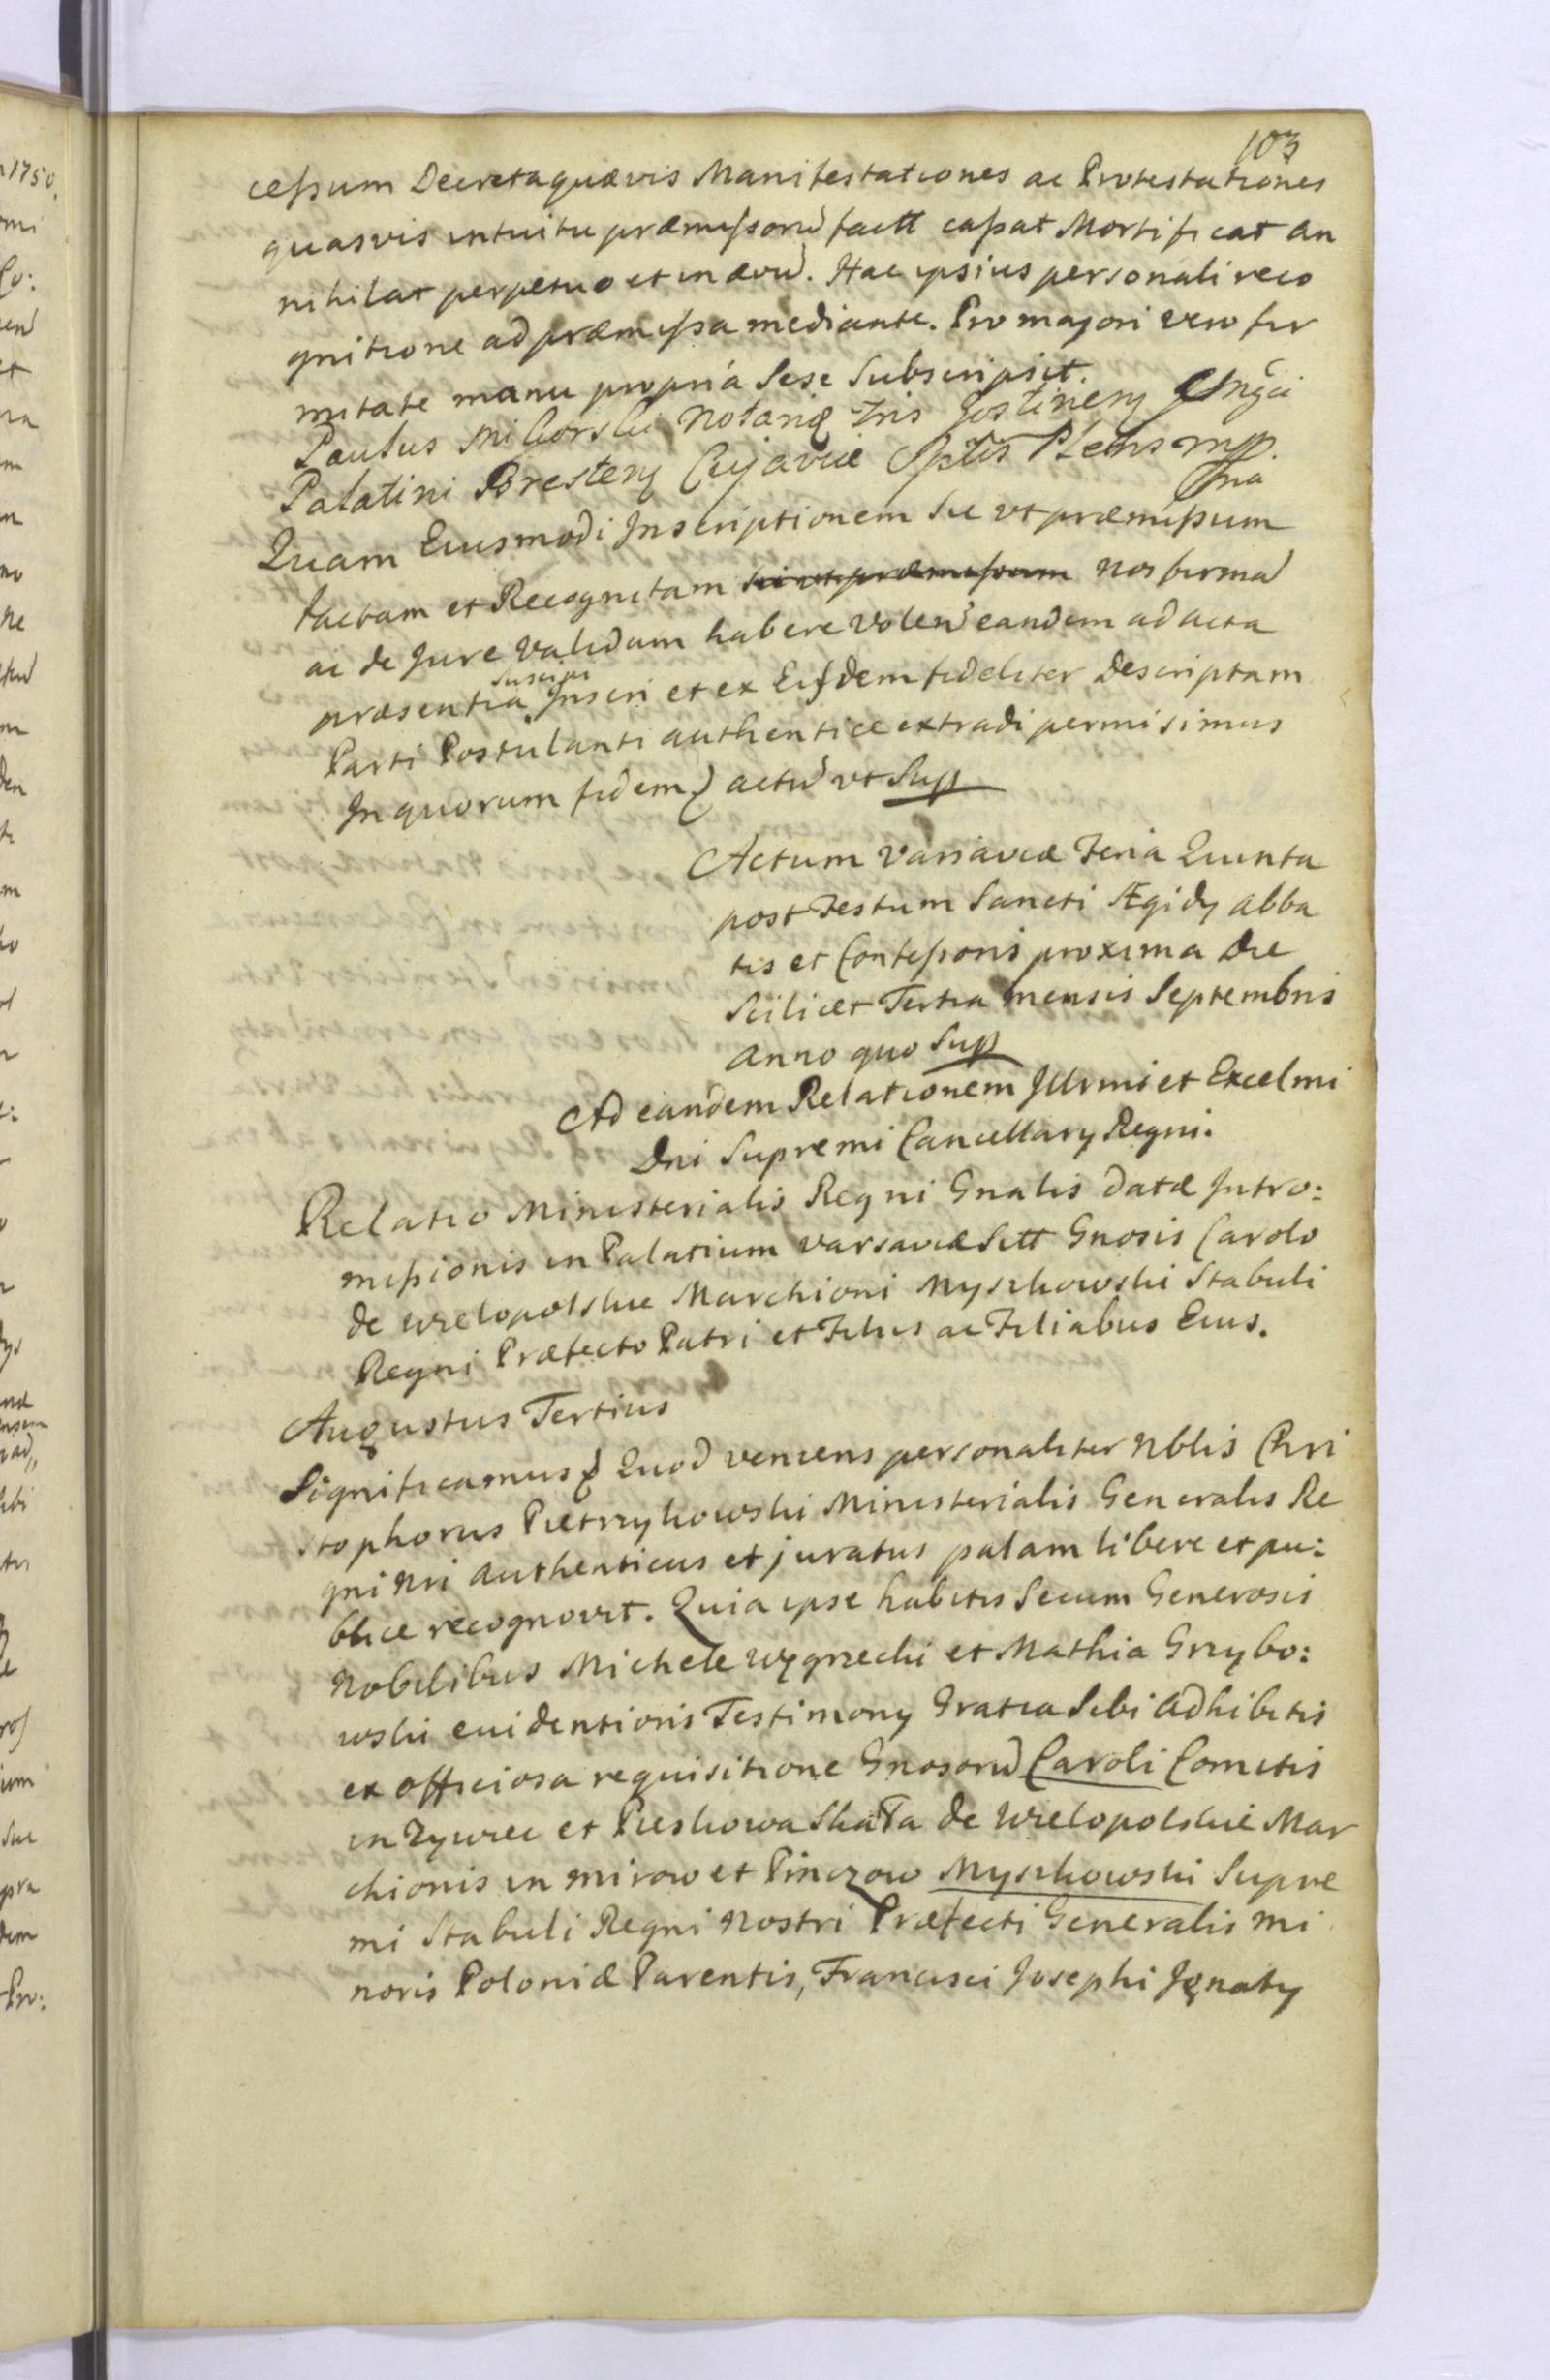 103
cessum Decreta quævis Manifestationes ac Protestationes
quasvis intuitu præmissorũ factt cassat Mortificat an
nihilat perpetuo et in ævũ. Hac ipsius personali reco
gnitione ad præmissa mediante. Pro majori vero fir
mitate manu propria Sese Subscripsit.
Paulus Notariq Tris Gostinen
Palatini Bresten Cujaviæ Plens mpp.
Quam Eiusmodi Inscriptionem Sic ut præmissum
factam et Recognitam sic ut præmissum nos firmã
ac de Jure validam habere volen eandem ad acta
præsentia suscipi Inseri et ex Eisdem fideliter Descriptam
Parti Postulanti authentice extradi permisimus
In quorum fidem actũ ut Sup
Actum Varsaviæ Feria Quinta
post Festum Sancti Ægidy abba
tis et Confessoris proxima die
Scilicet Tertia mensis Septembris
anno quo Sup
Ad eandem Relationem Illrmi et Excelmi
Dni Supremi Cancellary Regni.
Relatio Ministerialis Regni Gnalis datæ Intro:
missionis in Palatium Varsaviæ Sitt Gnosis Carolo
de Wielopolskie Marchioni Myszkowski Stabuli
Regni Præfecto Patri et Filiis ac Filiabus Eius.
Augustus Tertius
Significamus Quod veniens personaliter Nblis Chri
stophorus Pietrzykowski Ministerialis Generalis Re
gni Nri authenticus et juratus palam libere et pu:
blice recognovit. Quia ipse habitis Secum Generosis
Nobilibus Michele Węgrzecki et Mathia Grzybo:
wski evidentioris Testimony Gratia Sibi adhibitis
ex officiosa requisitione Gnosorũ Caroli Comitis
in Zywiec et Pieskowa Skała de Wielopolskie Mar
chionis in Mirow et Pinczow Myszkowski Supre
mi Stabuli Regni Nostri Præfecti Generalis Mi
noris Poloniæ Parentis, Francisci Josephi Ignaty